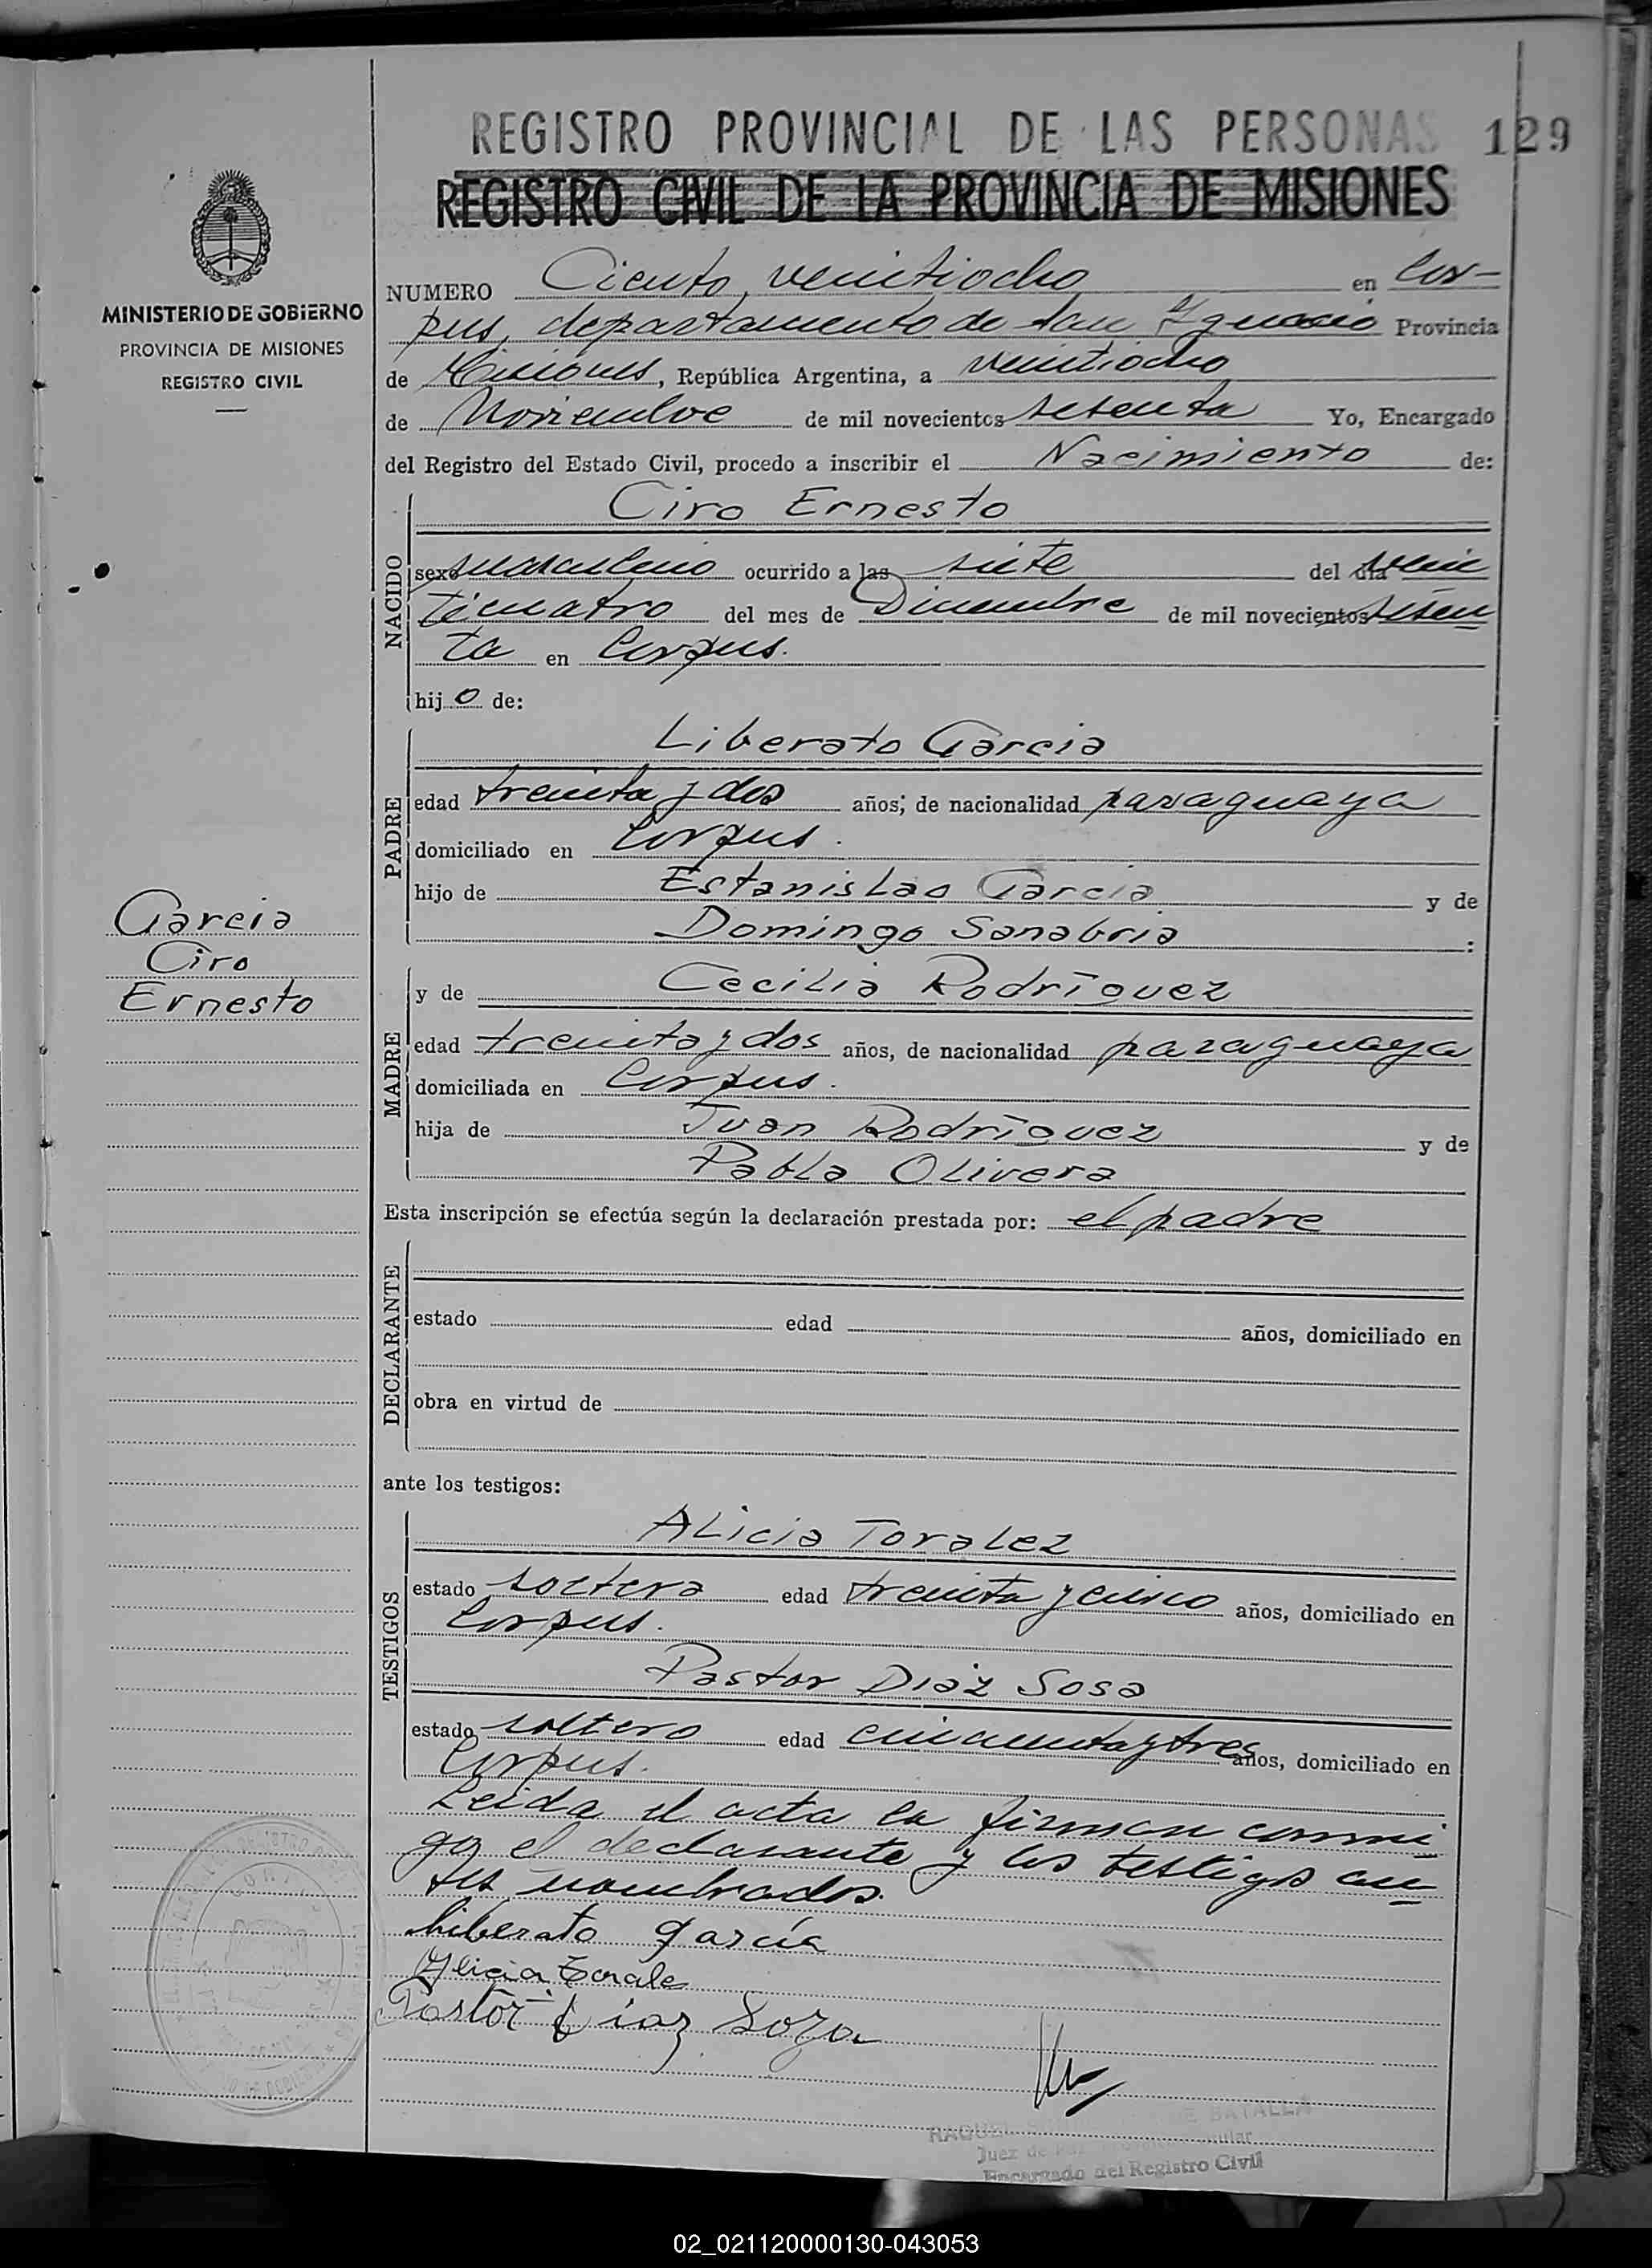 REGISTRO PROVINCIAL DE LAS PERSONAS 129
REGISTRO CIVIL DE LA PROVINCIA DE MISIONES
MINISTERIO DE GOBIERNO
PROVINCIA DE MISIONES
REGISTRO CIVIL
NUMERO Ciento veintiocho en Cor-
pus, departamento de San Ignacio Provincia
de Misiones, República Argentina, a veintiocho
de Noviembre de mil novecientos setenta Yo, Encargado
del Registro del Estado Civil, procedo a inscribir el Nacimiento de:
NACIDO
Ciro Ernesto
sexo masculino ocurrido a las siete del día vein
ticuatro del mes de Diciembre de mil novecientos seten
ta en Corpus.
hijo de:
PADRE
Liberato Garcia
edad treinta y dos años; de nacionalidad paraguaya
domiciliado en Corpus.
hijo de Estanislao Garcia y de
Domingo Sanabria :
Garcia
Ciro
Ernesto
MADRE
y de Cecilia Rodríguez
edad treinta y dos años, de nacionalidad paraguaya
domiciliada en Corpus.
hija de Juan Rodríguez y de
Pabla Olivera
Esta inscripción se efectúa según la declaración prestada por: el padre
DECLARANTE
estado edad años, domiciliado en
obra en virtud de
ante los testigos:
TESTIGOS
Alicia Toralez
estado soltera edad treinta y cinco años, domiciliado en
Corpus.
Pastor Diaz Sosa
estado soltero edad cincuenta y tres años, domiciliado en
Corpus.
Leida el acta la firman conmi
go el declarante y los testigos an
tes nombrados.
Liberato García
Alicia Torale
Pastor Diaz Soza
DE BATALLA
Juez de
Encargado del Registro Civil
02_021120000130-043053